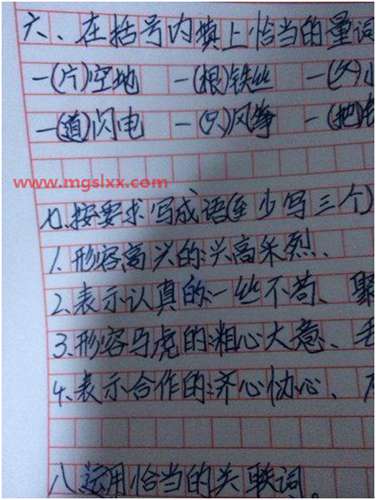 六、在括号内填上恰当的量词
一(片)空地 一(根)铁丝 一(
一(道)闪电 一(只)风筝 一(把
www.mgslxx.com
七.按要求写成语(至少写三个)
1.形容高兴的:兴高采烈、
2.表示认真的:一丝不苟、聚
3.形容马虎的:粗心大意、毛
4.表示合作的:齐心协心、
八.运用恰当的关联词